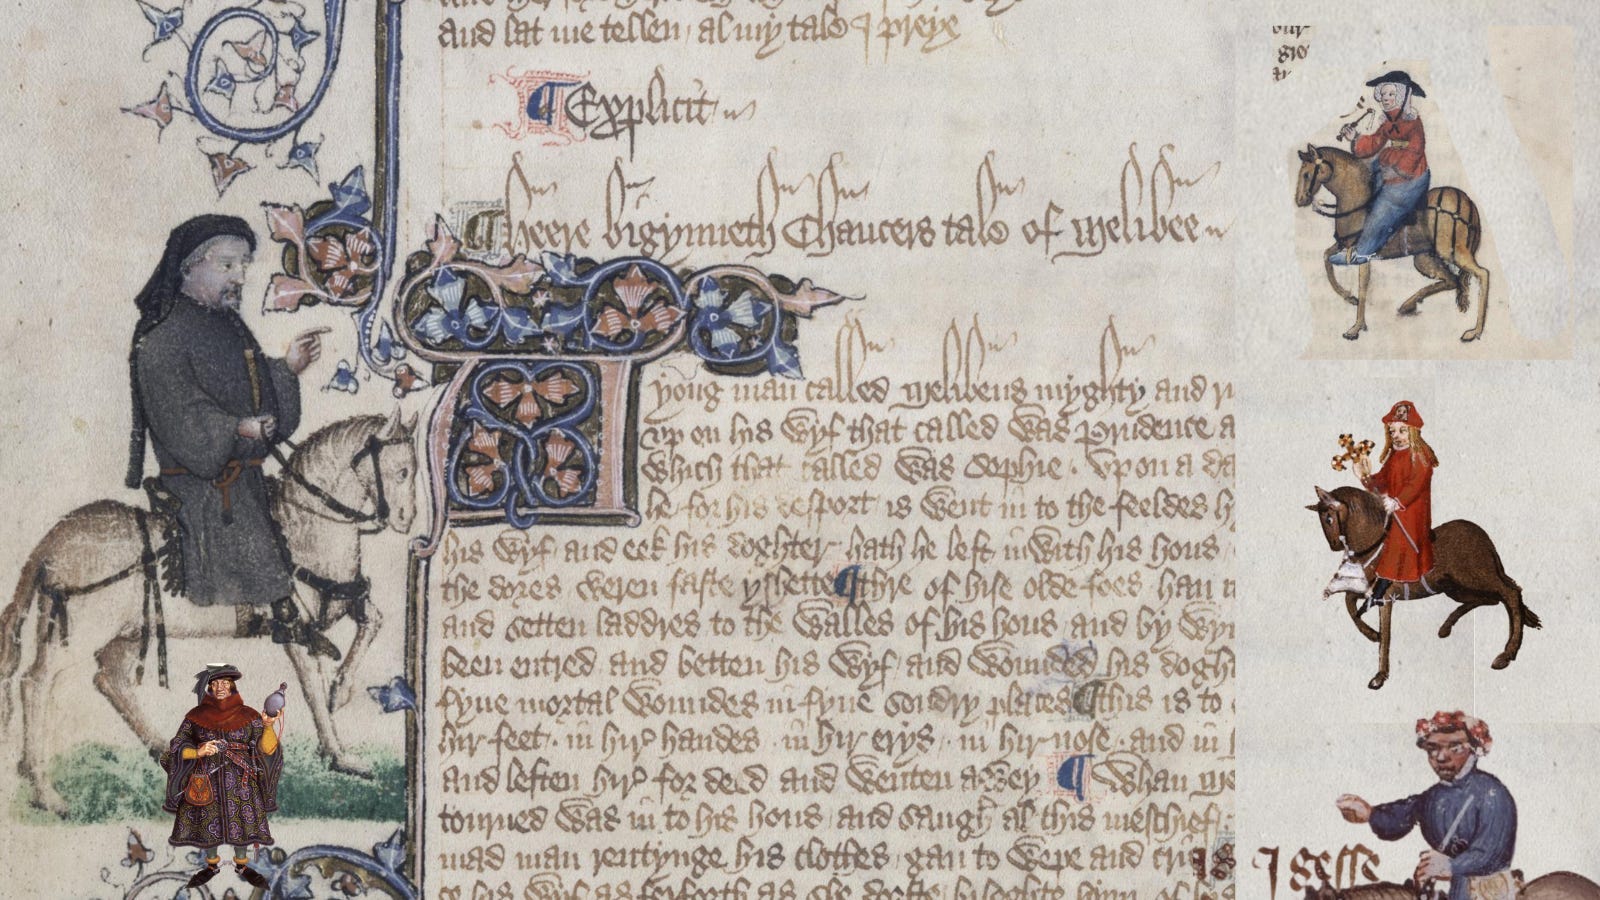 and lat me tellen al my tale I preye
¶ Explicit
¶ Heere bigynneth Chaucers tale of Melibee
A yong man called Melibeus myghty and
up on his wyf that called was Prudence a
which that called was Sophie . Upon a da
he for his desport is went in to the feeldes h
his wyf and eek his doghter hath he left inwith his hous
the dores weren faste yshette ¶ thre of hise olde foes han
and setten laddres to the walles of his hous and by wyn
been entred and betten his wyf and wounded his dogh
fyue mortal woundes in fyue sondry places ¶ this is to
hir feet . in hir handes . in hir erys . in hir nose . and in
and leften hir for deed and wenten awey ¶ Whan Me
tourned was in to his hous and saugh al this meschief
mad man rentynge his clothes gan to wepe and cri
our
gre
I gesse